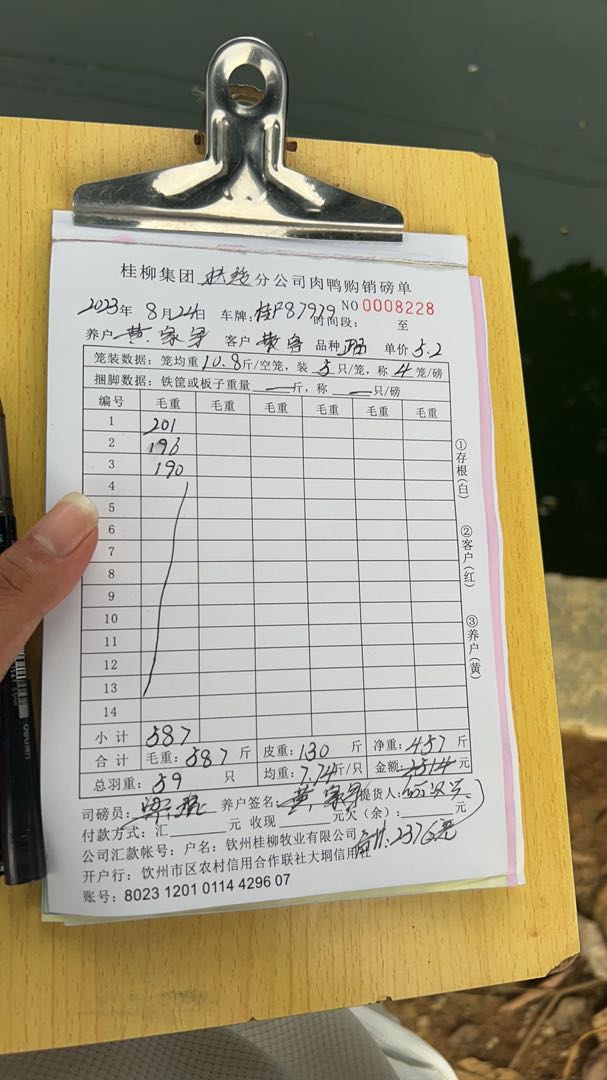 桂柳集团 分公司肉鸭购销磅单
2023年 8月24日 车牌:桂F87979 NO 0008228
时间段: 至
养户 黄家 客户 散客 品种 单价 5.2
笼装数据:笼均重10.8斤/空笼,装 5 只/笼,称 4 笼/磅
捆脚数据:铁筐或板子重量 — 斤,称 — 只/磅
编号 毛重 毛重 毛重 毛重 毛重 毛重
1 201
2 196
3 190
4
5
6
7
8
9
10
11
12
13
14
小计 587
合计 毛重:587 斤 皮重:130 斤 净重:457 斤
总羽重:59 只 均重:7.74斤/只 金额:2514 元
司磅员: 养户签名:黄家 提货人:
付款方式:汇 元 收现 元欠(余): 元
公司汇款帐号:户名:钦州桂柳牧业有限公司 合计:2376元
开户行:钦州市区农村信用合作联社大垌信用社
账号:8023 1201 0114 4296 07
①存根(白)
②客户(红)
③养户(黄)